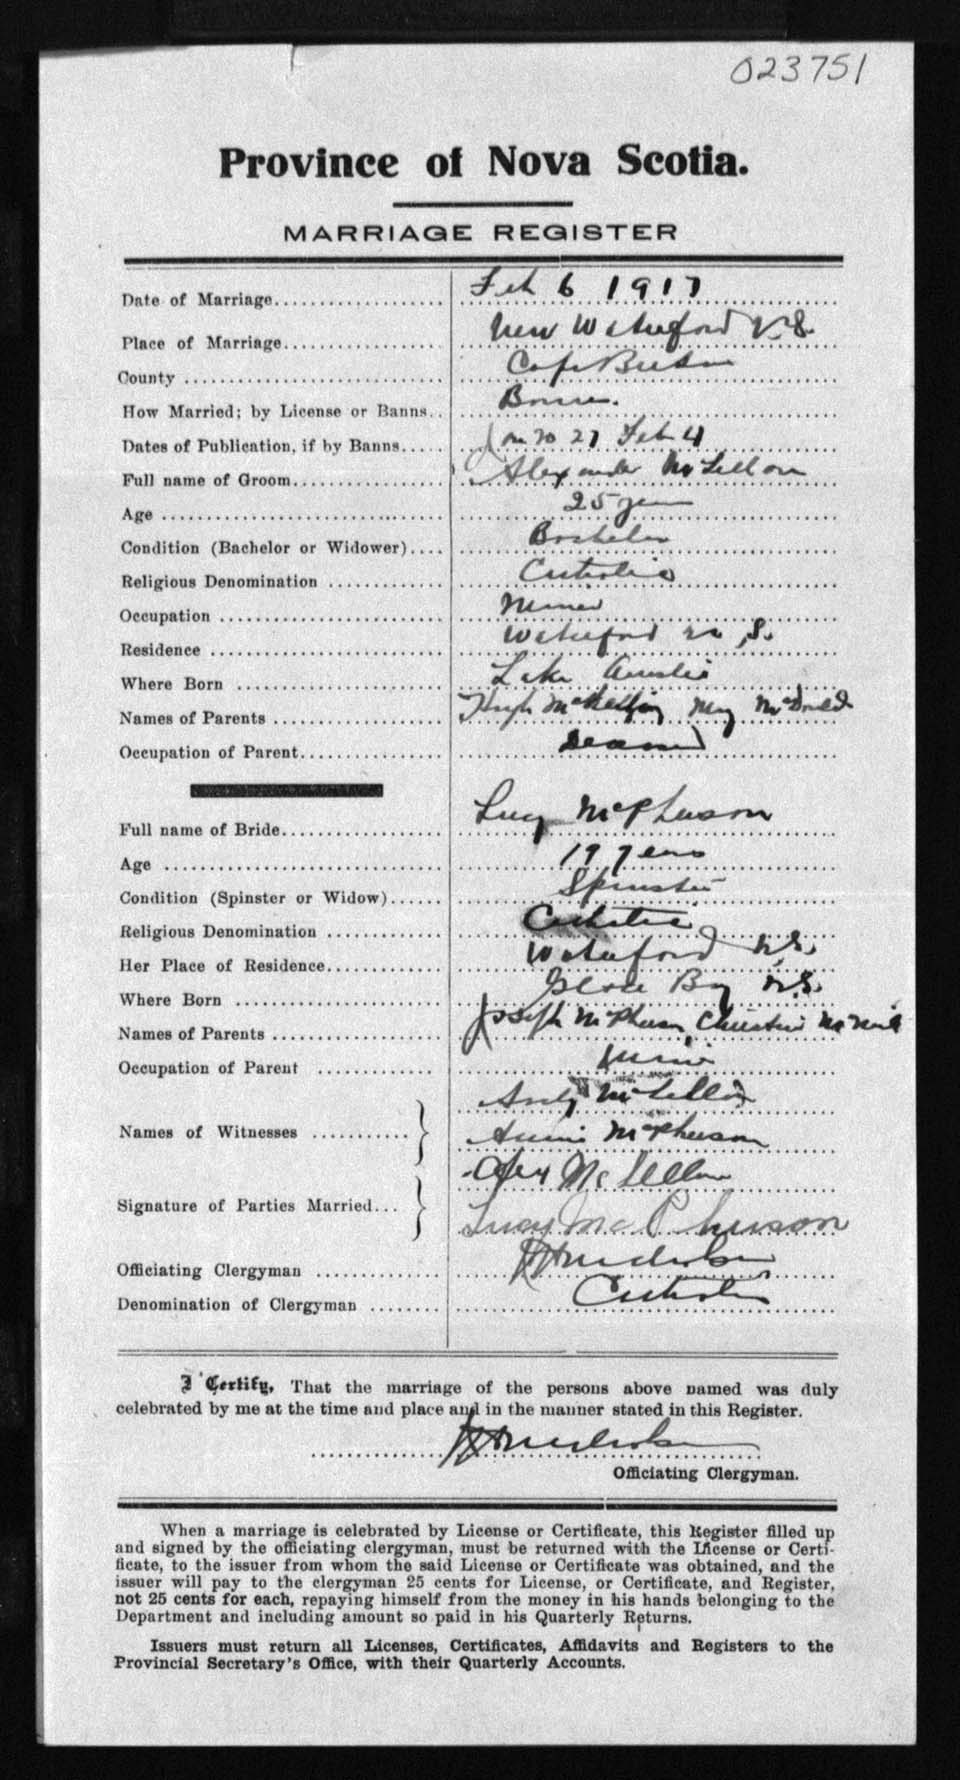 023751
Province of Nova Scotia.
MARRIAGE REGISTER
Date of Marriage Feb 6 1917
Place of Marriage New Waterford N.S.
County Cape Breton
How Married; by License or Banns Banns.
Dates of Publication, if by Banns Jan 20 27 Feb 4
Full name of Groom Alexander McLellan
Age 25 years
Condition (Bachelor or Widower) Bachelor
Religious Denomination Catholic
Occupation Miner
Residence Waterford N.S.
Where Born Lake Ainslie
Names of Parents Hugh Mary McDonald
Occupation of Parent Deceased
Full name of Bride Lucy McPherson
Age 19 years
Condition (Spinster or Widow) Spinster
Religious Denomination Catholic
Her Place of Residence Waterford N.S.
Where Born Glace Bay N.S.
Names of Parents Joseph McPherson Christie McNeil
Occupation of Parent Miner
Names of Witnesses McLellan
Annie McPherson
Signature of Parties Married Alex McLellan
Lucy McPherson
Officiating Clergyman
Denomination of Clergyman Catholic
I Certify, That the marriage of the persons above named was duly
celebrated by me at the time and place and in the manner stated in this Register.
Officiating Clergyman.
When a marriage is celebrated by License or Certificate, this Register filled up
and signed by the officiating clergyman, must be returned with the License or Certi-
ficate, to the issuer from whom the said License or Certificate was obtained, and the
issuer will pay to the clergyman 25 cents for License, or Certificate, and Register,
not 25 cents for each, repaying himself from the money in his hands belonging to the
Department and including amount so paid in his Quarterly Returns.
Issuers must return all Licenses, Certificates, Affidavits and Registers to the
Provincial Secretary's Office, with their Quarterly Accounts.